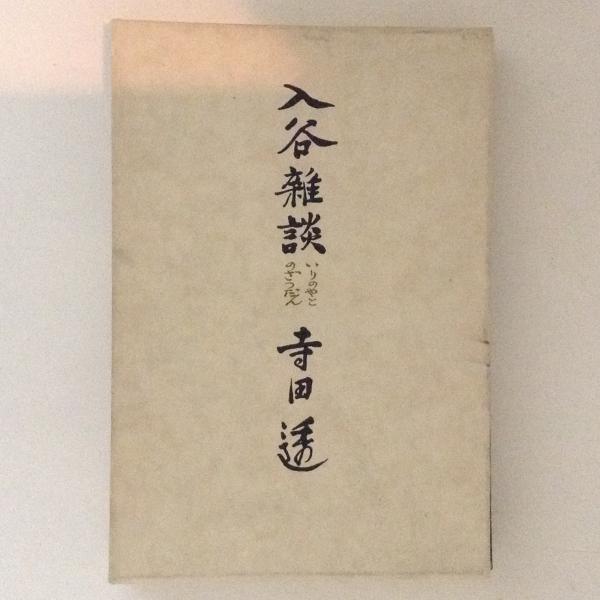 入谷雑談
いりのやと
のざつだん
寺田透